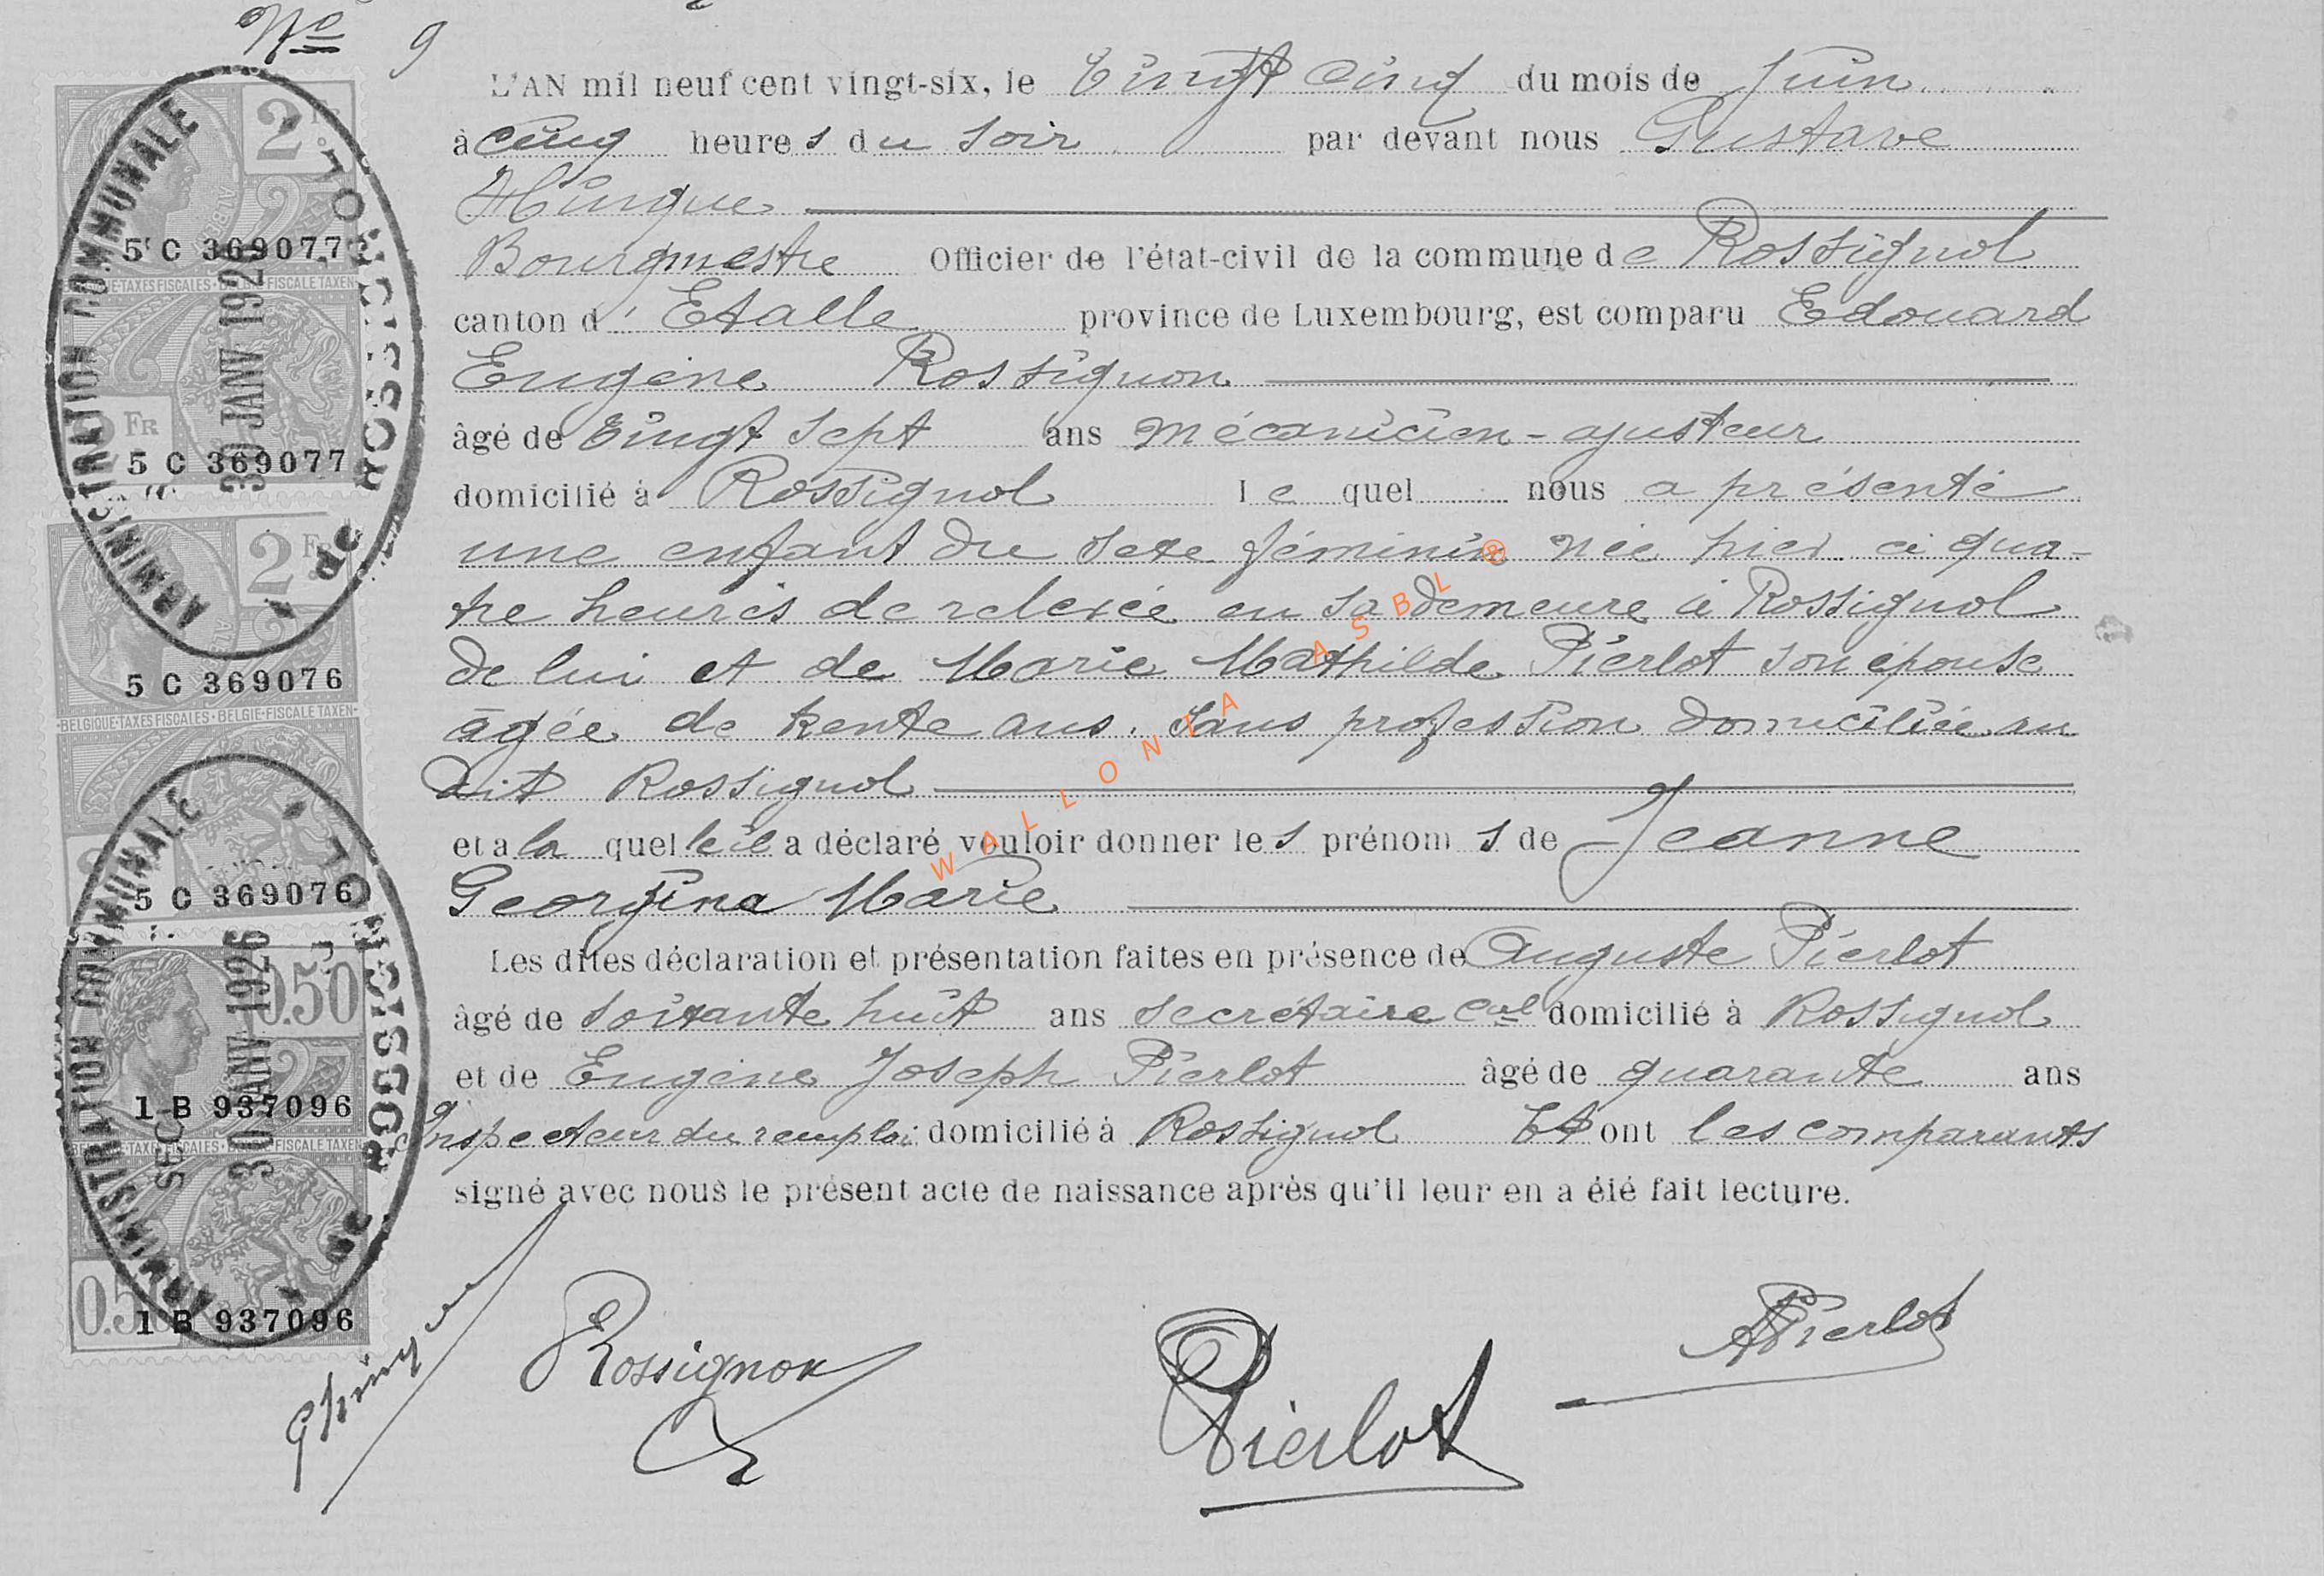 No 9
L'AN mil neuf cent vingt-six, le Vingt Cinq du mois de Juin
à cinq heures du soir par devant nous Gustave
Hinque
Bourgmestre Officier de l'état-civil de la commune de Rossignol
canton d'Etalle province de Luxembourg, est comparu Edouard
Eugène Rossignon
âgé de Vingt sept ans mécanicien-ajusteur
domicilié à Rossignol le quel nous a présenté
une enfant du sexe féminin née hier à qua-
tre heures de relevée en sa demeure à Rossignol
de lui et de Marie Mathilde Pierlot son épouse
âgée de trente ans. sans profession domiciliée au
dit Rossignol
et a la quelle il a déclaré vouloir donner les prénoms de Jeanne
Georgina Marie
Les dites déclaration et présentation faites en présence de Auguste Pierlot
âgé de soixante huit ans secrétaire cal domicilié à Rossignol
et de Eugène Joseph Pierlot âgé de quarante ans
Inspecteur du remploi domicilié à Rossignol Et ont les comparants
signé avec nous le présent acte de naissance après qu'il leur en a été fait lecture.
GHinque
Rossignon
Pierlot
APierlot
WALLONIA ASBL ®
2 Fr
ALBERT
5 C 369077
BELGIQUE-TAXES FISCALES · BELGIE-FISCALE TAXEN
2 FR
5 C 369077
2 Fr
5 C 369076
BELGIQUE-TAXES FISCALES · BELGIE-FISCALE TAXEN
5 C 369076
0.50
1 B 937096
BELGIQUE-TAXES FISCALES · BELGIE-FISCALE TAXEN
0.50
1 B 937096
ADMINISTRATION COMMUNALE de ROSSIGNOL
30 JANV 1926
ADMINISTRATION COMMUNALE de ROSSIGNOL
30 JANV 1926